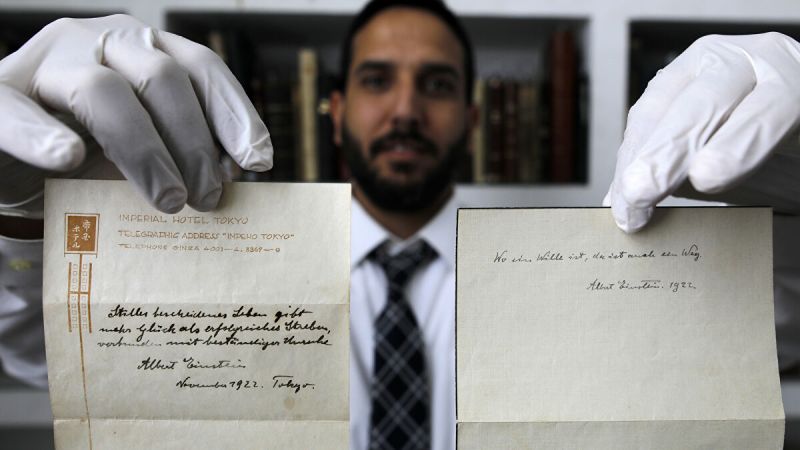 帝国
ホテル
IMPERIAL HOTEL TOKYO
TELEGRAPHIC ADDRESS "INPEHO TOKYO"
TELEPHONE GINZA 4001—4.
Stilles bescheidenes Leben gibt
mehr Glück als erfolgreiches Streben,
verbunden mit beständiger Unruhe
Albert Einstein
November 1922. Tokyo.
Wo ein Wille ist, da ist auch ein Weg.
Albert Einstein. 1922.